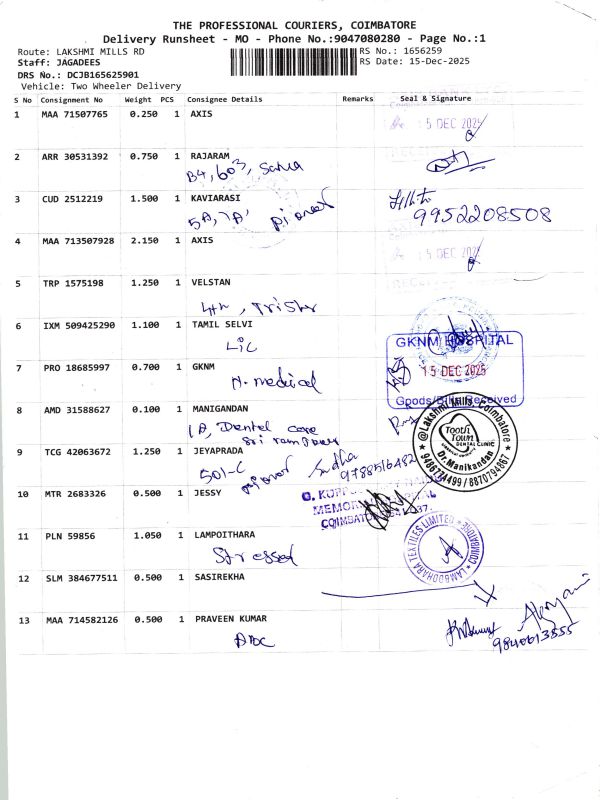 THE PROFESSIONAL COURIERS, COIMBATORE
Delivery Runsheet - MO - Phone No.:9047080280 - Page No.:1
Route: LAKSHMI MILLS RD
RS No.: 1656259
Staff: JAGADEES
RS Date: 15-Dec-2025
DRS No.: DCJB165625901
Vehicle: Two Wheeler Delivery
S No Consignment No Weight PCS Consignee Details Remarks Seal & Signature
1 MAA 71507765 0.250 1 AXIS
15 DEC 2025
2 ARR 30531392 0.750 1 RAJARAM
B4, 603,
3 CUD 2512219 1.500 1 KAVIARASI
5A, 7A,
9952208508
4 MAA 713507928 2.150 1 AXIS
15 DEC 2025
5 TRP 1575198 1.250 1 VELSTAN
4th,
6 IXM 509425290 1.100 1 TAMIL SELVI
LIC
GKNM HOSPITAL
7 PRO 18685997 0.700 1 GKNM
N. medical
15 DEC 2025
Goods/Bills Received
8 AMD 31588627 0.100 1 MANIGANDAN
1A, Dental care
@Lakshmi Mills, Coimbatore
Tooth Town
DENTAL CLINIC
Dr. Manikandan
9486734499 / 8870794867
9 TCG 42063672 1.250 1 JEYAPRADA
501-C
Sudha
9788516482
10 MTR 2683326 0.500 1 JESSY
MEMORIAL HOSPITAL
11 PLN 59856 1.050 1 LAMPOITHARA
Stressed
LAMBODHARA TEXTILES LIMITED
COIMBATORE
12 SLM 384677511 0.500 1 SASIREKHA
13 MAA 714582126 0.500 1 PRAVEEN KUMAR
9840613555